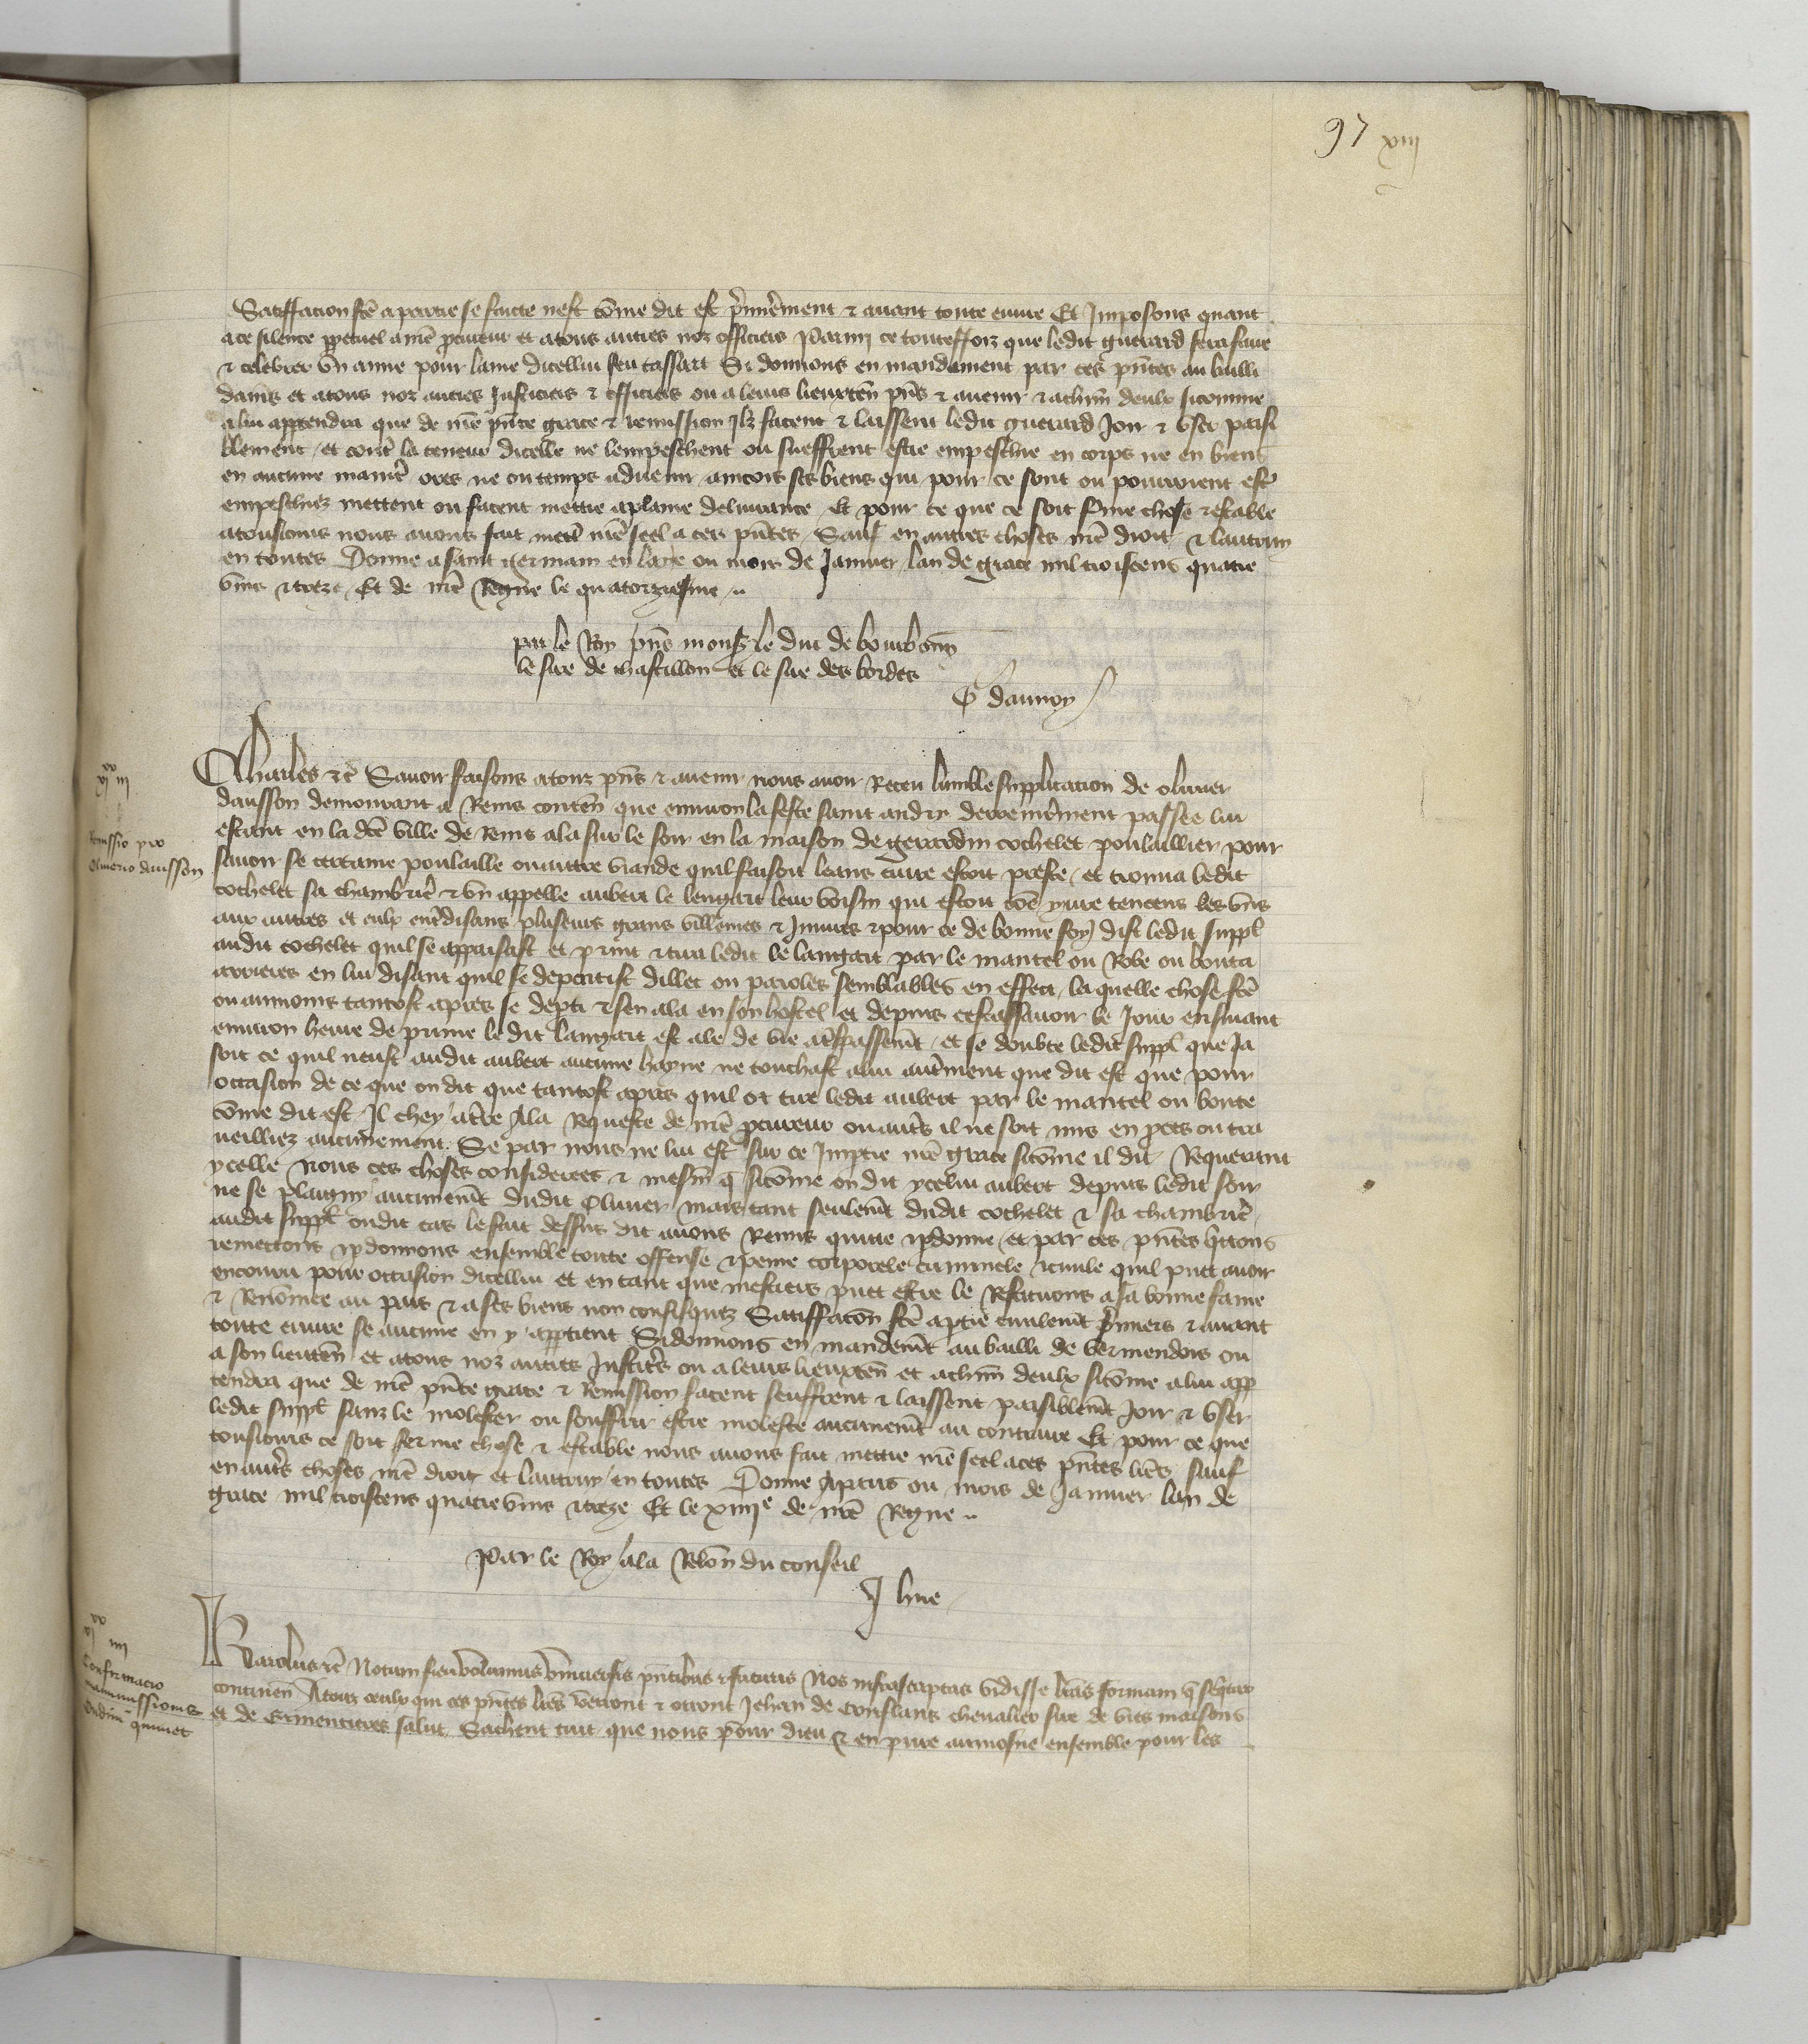 97 xiij
Satiffacion fce a partie se faicte nest coe dit est prmierement & avant toute euvre Et Imposons quant
a ce silence ppetuel a nre procureur et a tous autres noz officiers Parmi ce toutesfoiz que ledit guerard fera faire
& celebrer un anne pour lame dicellui feu tassart Si donnons en mandement par ces pntes au bailli
damiens et a tous noz autres Justiciers & officiers ou a leurs lieuxten pns & avenir & a chm deulx sicomme
a lui appendra que de nre pnte grace & remission Ilz facent & laissent ledit guerard Joir & user paisi
blement et contre la teneur dicelle ne lempeschent ou sueffrent estre empeschie en corps ne en biens
en aucune manie ores ne ou temps advenir aincois ses biens qui pour ce sont ou pourroient est
empeschiez mettent ou facent mettre a plaine delivrance Et pour ce que ce soit ferme chose & estable
a tousiours nous avons fait mett nre seel a ces pntes Sauf en autres choses nre droit & lautruy
en toutes Donne a saint germain en laye ou mois de Janvier lan de grace mil troiscens quatre
vins & treze Et de nre Regne le quatorzeisme
par le Roy pns mons le duc de bourbonn
le sire de chastillon et le sire des bordes
G daunoy
Charles &c Savoir faisons a touz pns & avenir nous avoir Receu lumble supplicacion de olivier
dausson demourant a Reins conten que environ la feste saint andry derrenierement passee lui
estant en la dce ville de Reins ala sur le soir en la maison de gerardin cochelet poulaillier pour
savoir se certaine poulaille ou autre viande quil faisoit leans cuire estoit preste et trouva ledit
cochelet sa chambrie & un appelle aubert le lengart leur voisin qui estoit coe yvre tencens les uns
aux autres et eulx entredisans pluseurs grans villenies & Iniures & pour ce de bonne foy dist ledit suppl
audit cochelet quil se appaisast et print & tira ledit le langart par le mantel ou Robe ou bouta
arrieres en lui disant quil se departist dillec ou paroles semblables en effect laquelle chose fce
ou aumoins tantost apres se depti & sen ala en son hostel et depuis cestassavoir le Jour ensuivant
environ heure de prime ledit langart est ale de vie a trespassemt et se doubte ledit suppl que Ja
soit ce quil neust audit aubert aucune hayne ne touchast a lui autrement que dit est que pour
occasion de ce que on dit que tantost apres quil ot tire ledit aubert par le mantel ou boute
coe dit est Il chey a tre A la Requeste de nre procureur ou autres il ne soit mis en proces ou tra
veilliez aucunement Se par nous ne lui est sur ce Impartie nre grace sicoe il dit Requerant
ycelle Nous ces choses considerees & mesm q sicoe on dit ycelui aubert depuis ledit soir
ne se plaigny aucunemt dudit Olivier mais tant seulemt dudit cochelet & sa chambrie
audit suppl ou dit cas le fait dessus dit avons Remis quitte & pdonne et par ces pntes qttons
remettons & pdonnons ensemble toute offense & peine corporele criminele & civile quil puet avoir
encouru pour occasion dicellui et en tant que mestiers puet estre le Restituons a sa bonne fame
& Renomee au pais & a ses biens non confisquez Satisfacon fce a ptie civilemt pmiers & avant
toute euvre se aucune en y apptient Si donnons en mandemt au bailli de Vermendois ou
a son lieuten et a tous noz autres Justicrs ou a leurs lieuxten et a chm deulx sicome a lui app
tendra que de nre pnte grace & Remission facent seuffrent & laissent paisiblemt Joir & user
ledit suppl sanz le molester ou souffrir estre moleste aucunemt au contraire Et pour ce que
tousiours ce soit ferme chose & estable nous avons fait mettre nre seel a ces pntes lres sauf
en autres choses nre droit et lautruy en toutes Donne a Paris ou mois de Janvier lan de
grace mil troiscens quatre vins & treze Et le xiiije de nre Regne
Par le Roy a la Relon du conseil
J hue
vi xx iij
Remissio pro
Oliverio dausson
Karolus &c Notum facimus universis pntibus & futuris Nos infrascriptas vidisse lras formam q sequitur
continen A touz ceulx qui ces pntes lres verront & orront Jehan de Conflans chevalier sire de vies maisons
et de Ermenteres salut Sachent tuit que nous pour dieu & en pure aumosne ensemble pour les
vi xx iiij
Confirmacio
manumissionis